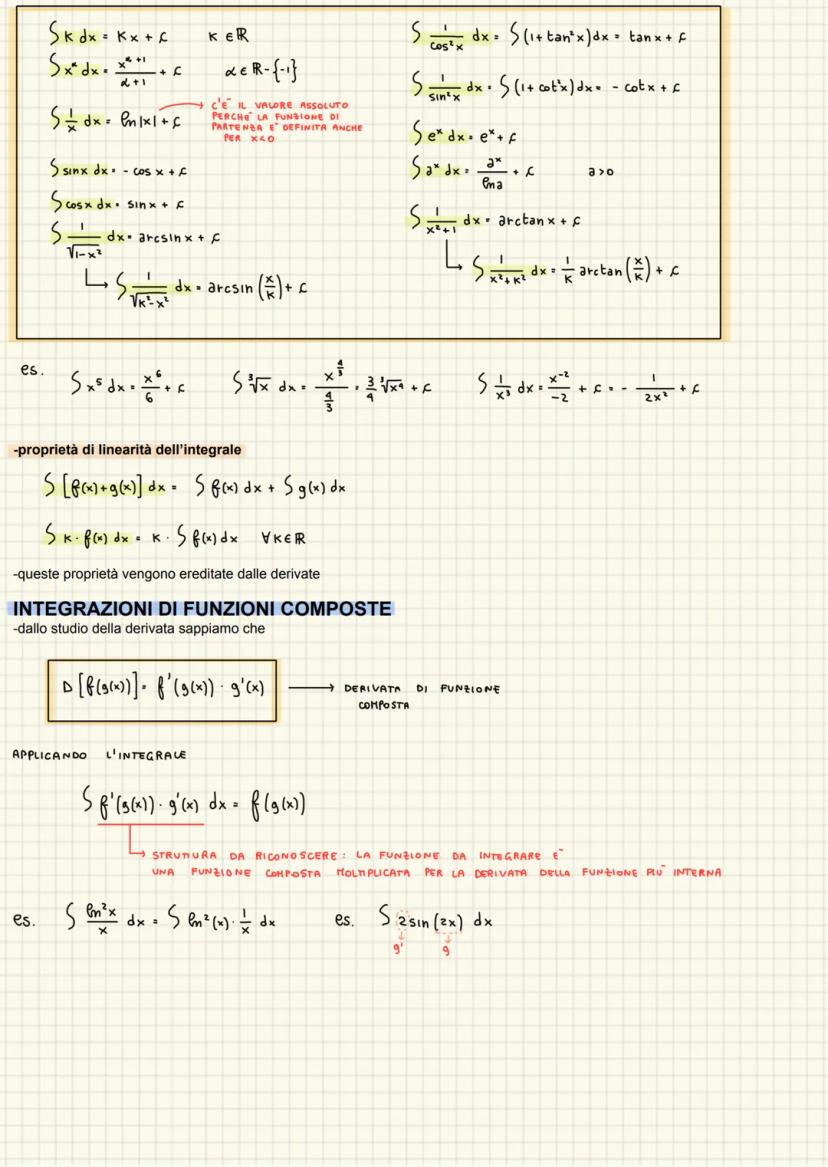 ∫ K dx = Kx + c K ∈ ℝ
∫ x^α dx = x^(α+1)/(α+1) + c α ∈ ℝ-{-1}
∫ 1/x dx = ln|x| + c
C'È IL VALORE ASSOLUTO
PERCHÈ LA FUNZIONE DI
PARTENZA È DEFINITA ANCHE
PER X<0
∫ sinx dx = - cos x + c
∫ cosx dx = sinx + c
∫ 1/√(1-x²) dx = arcsinx + c
∫ 1/√(K²-x²) dx = arcsin (x/K) + c
∫ 1/cos²x dx = ∫(1+tan²x)dx = tanx + c
∫ 1/sin²x dx = ∫(1+cot²x)dx = - cotx + c
∫ e^x dx = e^x + c
∫ a^x dx = a^x/lna + c a>0
∫ 1/(x²+1) dx = arctanx + c
∫ 1/(x²+K²) dx = 1/K arctan (x/K) + c
es. ∫ x⁵ dx = x⁶/6 + c ∫ ³√x dx = x^(4/3)/(4/3) = 3/4 ³√x⁴ + c ∫ 1/x³ dx = x^-2/-2 + c = - 1/2x² + c
-proprietà di linearità dell'integrale
∫ [f(x)+g(x)] dx = ∫ f(x) dx + ∫ g(x) dx
∫ K · f(x) dx = K · ∫ f(x) dx ∀K∈ℝ
-queste proprietà vengono ereditate dalle derivate
INTEGRAZIONI DI FUNZIONI COMPOSTE
-dallo studio della derivata sappiamo che
D [f(g(x))] = f'(g(x)) · g'(x) → DERIVATA DI FUNZIONE
COMPOSTA
APPLICANDO L'INTEGRALE
∫ f'(g(x)) · g'(x) dx = f(g(x))
STRUTTURA DA RICONOSCERE: LA FUNZIONE DA INTEGRARE È
UNA FUNZIONE COMPOSTA MOLTIPLICATA PER LA DERIVATA DELLA FUNZIONE PIÙ INTERNA
es. ∫ ln²x/x dx = ∫ ln²(x) · 1/x dx es. ∫ 2sin(2x) dx
g' g